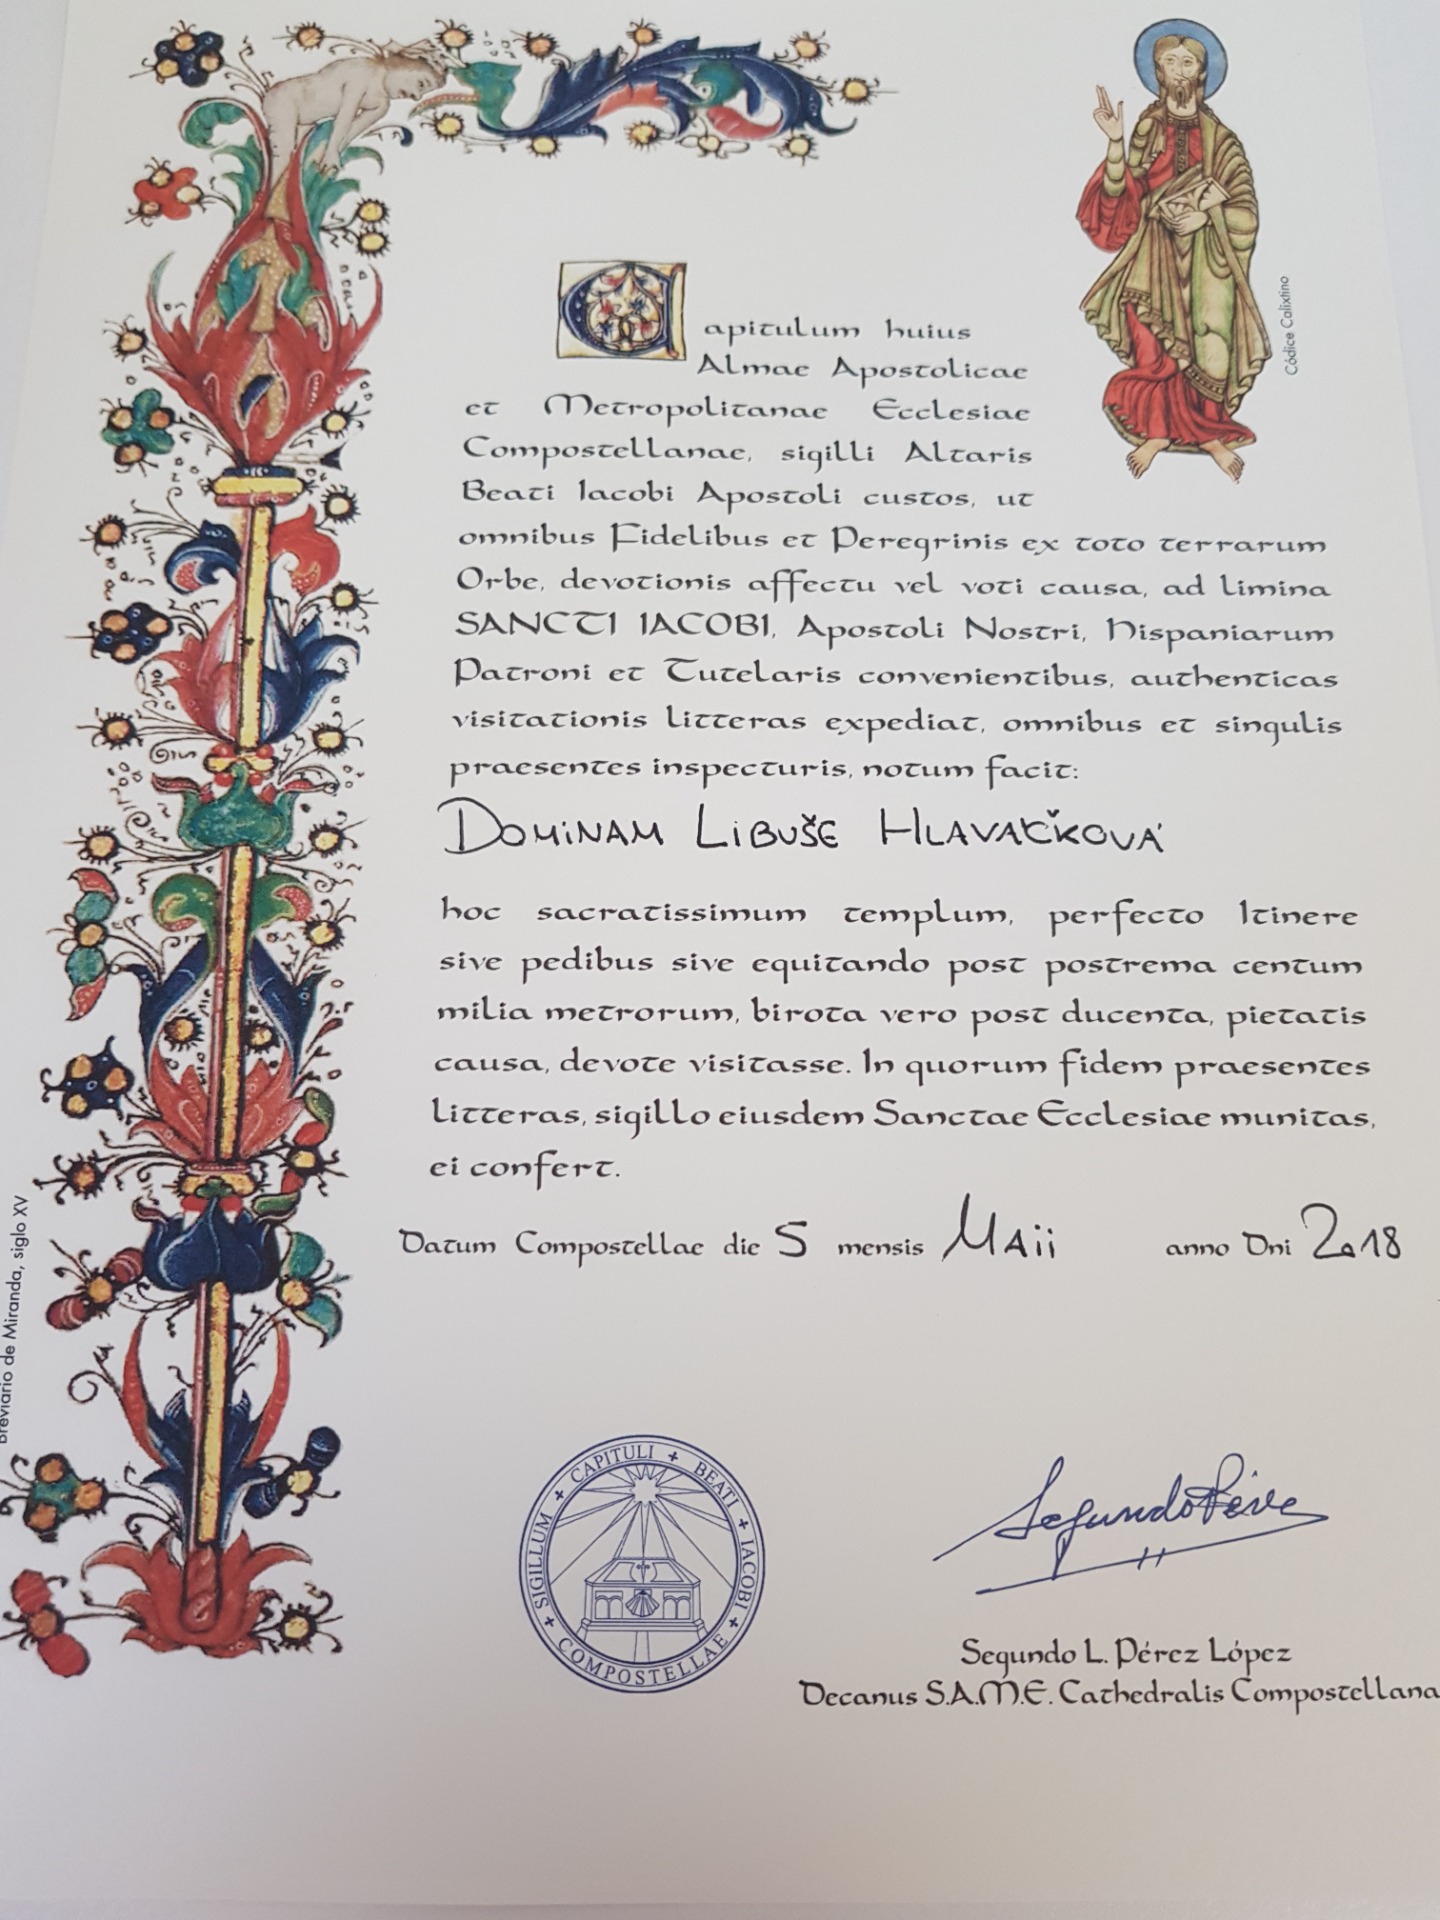 Códice Calixtino
Capitulum huius
Almae Apostolicae
et Metropolitanae Ecclesiae
Compostellanae, sigilli Altaris
Beati Iacobi Apostoli custos, ut
omnibus Fidelibus et Peregrinis ex toto terrarum
Orbe, devotionis affectu vel voti causa, ad limina
SANCTI IACOBI, Apostoli Nostri, Hispaniarum
Patroni et Tutelaris convenientibus, authenticas
visitationis litteras expediat, omnibus et singulis
praesentes inspecturis, notum facit:
DOMINAM LIBUŠE HLAVAČKOVÁ
hoc sacratissimum templum, perfecto Itinere
sive pedibus sive equitando post postrema centum
milia metrorum, birota vero post ducenta, pietatis
causa, devote visitasse. In quorum fidem praesentes
litteras, sigillo eiusdem Sanctae Ecclesiae munitas,
ei confert.
Datum Compostellae die 5 mensis MAii anno Dni 2018
Breviario de Miranda, siglo XV
SIGILLUM + CAPITULI + BEATI + IACOBI + COMPOSTELLAE +
Segundo Pérez
Segundo L. Pérez López
Decanus S.A.M.E. Cathedralis Compostellana